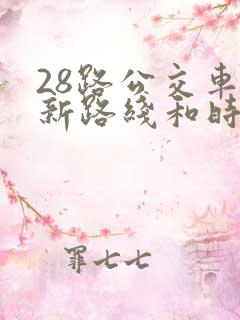 28路公交車
新路綫和時
罪七七